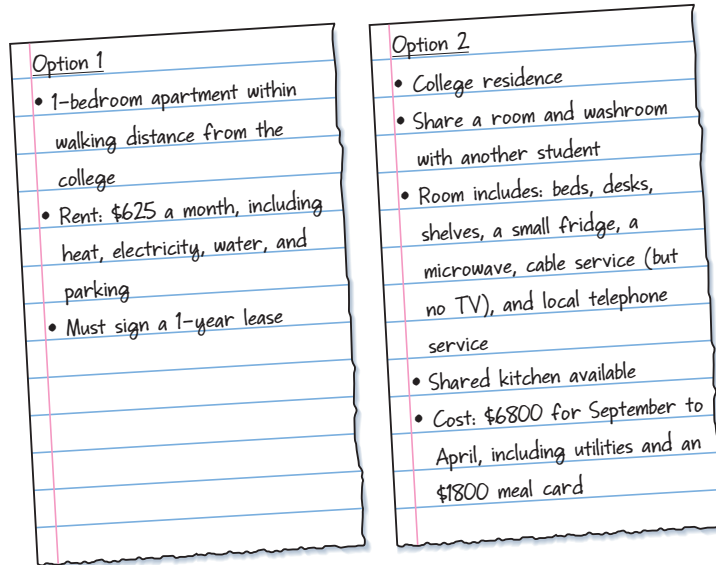 Option 1
• 1-bedroom apartment within
walking distance from the
college
• Rent: $625 a month, including
heat, electricity, water, and
parking
• Must sign a 1-year lease
Option 2
• College residence
• Share a room and washroom
with another student
• Room includes: beds, desks,
shelves, a small fridge, a
microwave, cable service (but
no TV), and local telephone
service
• Shared kitchen available
• Cost: $6800 for September to
April, including utilities and an
$1800 meal card